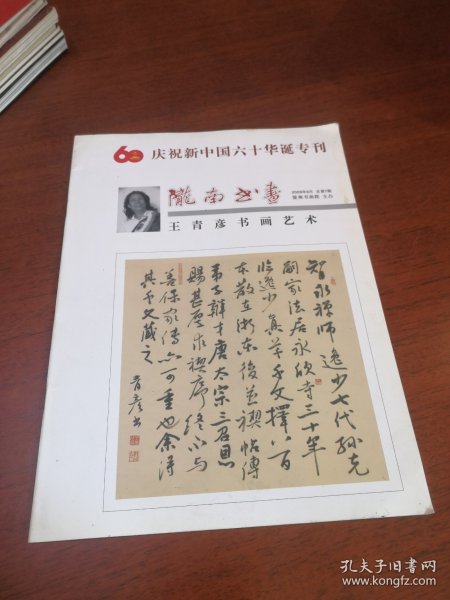 60 庆祝新中国六十华诞专刊
陇南书画
2009年9月 总第7期
陇南书画院 主办
王青彦书画艺术
智永禅师逸少七代孙克
嗣家法居永欣寺三十年
临逸少真草千文择八百
本散在浙东后并禊帖传
弟子辩才唐太宗三召恩
赐甚厚求禊序终不与
善保家传亦可重也余得
其千文藏之
青彦书
孔夫子旧书网
www.kongfz.com